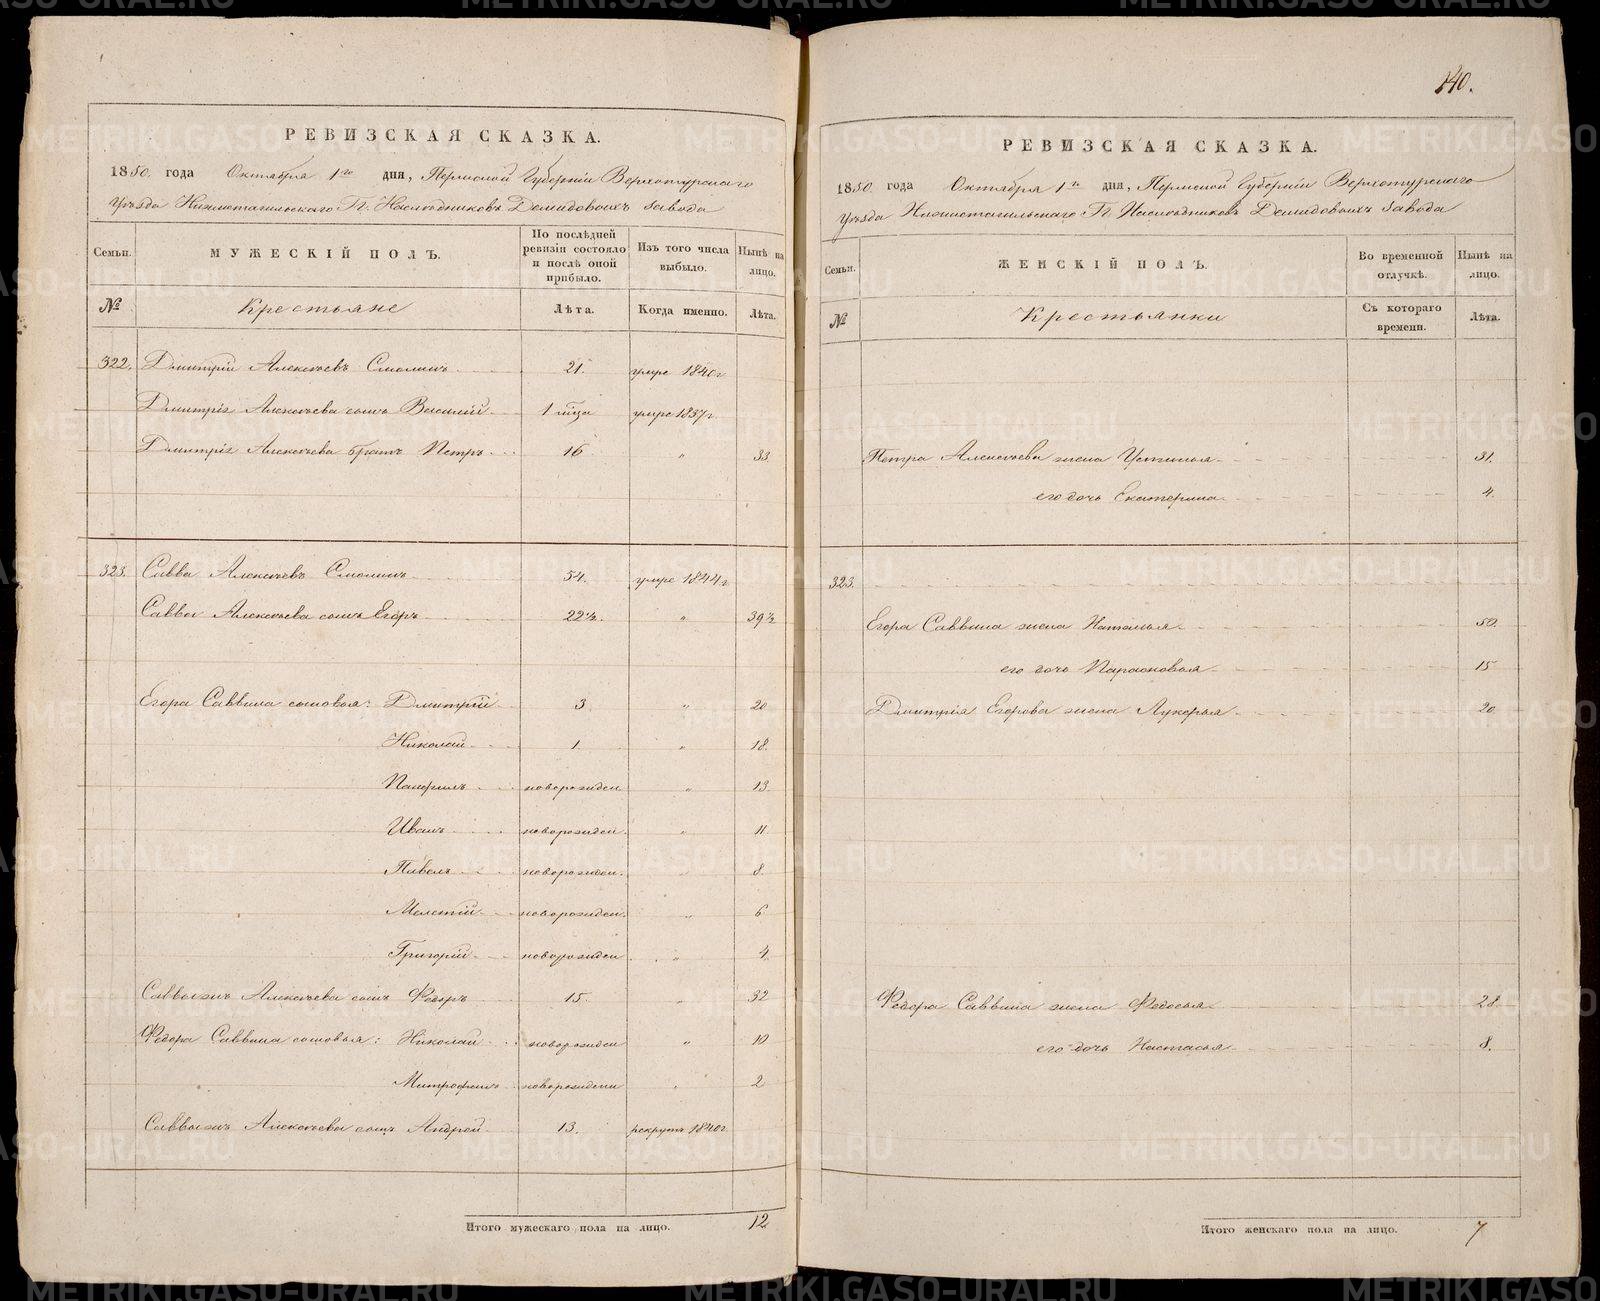 РЕВИЗСКАЯ СКАЗКА.
1850. года Октября 1го дня, Пермской Губерніи Верхотурскаго
Уѣзда Нижнетагильскаго Гг. Наслѣдниковъ Демидовыхъ Завода
Семьи. МУЖЕСКІЙ ПОЛЪ. По послѣдней ревизіи состояло и послѣ оной прибыло. Изъ того числа выбыло. Нынѣ на лицо.
№ Крестьяне Лѣта. Когда именно. Лѣта.
322. Дмитрій Алексѣевъ Смолинъ 21. умре 1840 г
Дмитрія Алексѣева сынъ Василій 1 мца умре 1837 г
Дмитрія Алексѣева братъ Петръ 16 " 33.
323. Савва Алексѣевъ Смолинъ 54. умре 1844 г
Саввы Алексѣева сынъ Егоръ 22½. " 39½
Егора Саввина сыновья: Дмитрій 3 " 20
Николай 1 " 18.
Панфилъ новорожден " 13
Иванъ новорожден. " 11
Павелъ новорожден. " 8.
Мелетій новорожден. " 6
Григорій новорожден " 4.
Саввы жъ Алексѣева сынъ Федоръ 15. " 32
Федора Саввина сыновья: Николай новорожден " 10
Митрофанъ новорождени " 2
Саввы жъ Алексѣева сынъ Андрей 13. рекрутъ 1840 г
Итого мужескаго пола на лицо. 12
140.
РЕВИЗСКАЯ СКАЗКА.
1850. года Октября 1го дня, Пермской Губерніи Верхотурскаго
Уѣзда Нижнетагильскаго Гг. Наслѣдниковъ Демидовыхъ Завода
Семьи. ЖЕНСКІЙ ПОЛЪ. Во временной отлучкѣ. Нынѣ на лицо.
№ Крестьянки Съ котораго времени. Лѣта.
Петра Алексѣева жена Устинья 31.
его дочь Екатерина 4.
323.
Егора Саввина жена Наталья 50.
его дочь Парасковья 15
Дмитрія Егорова жена Лукерья 20.
Федора Саввина жена Федосья 28
его дочь Настасья 8.
Итого женскаго пола на лицо. 7
METRIKI.GASO-URAL.RU